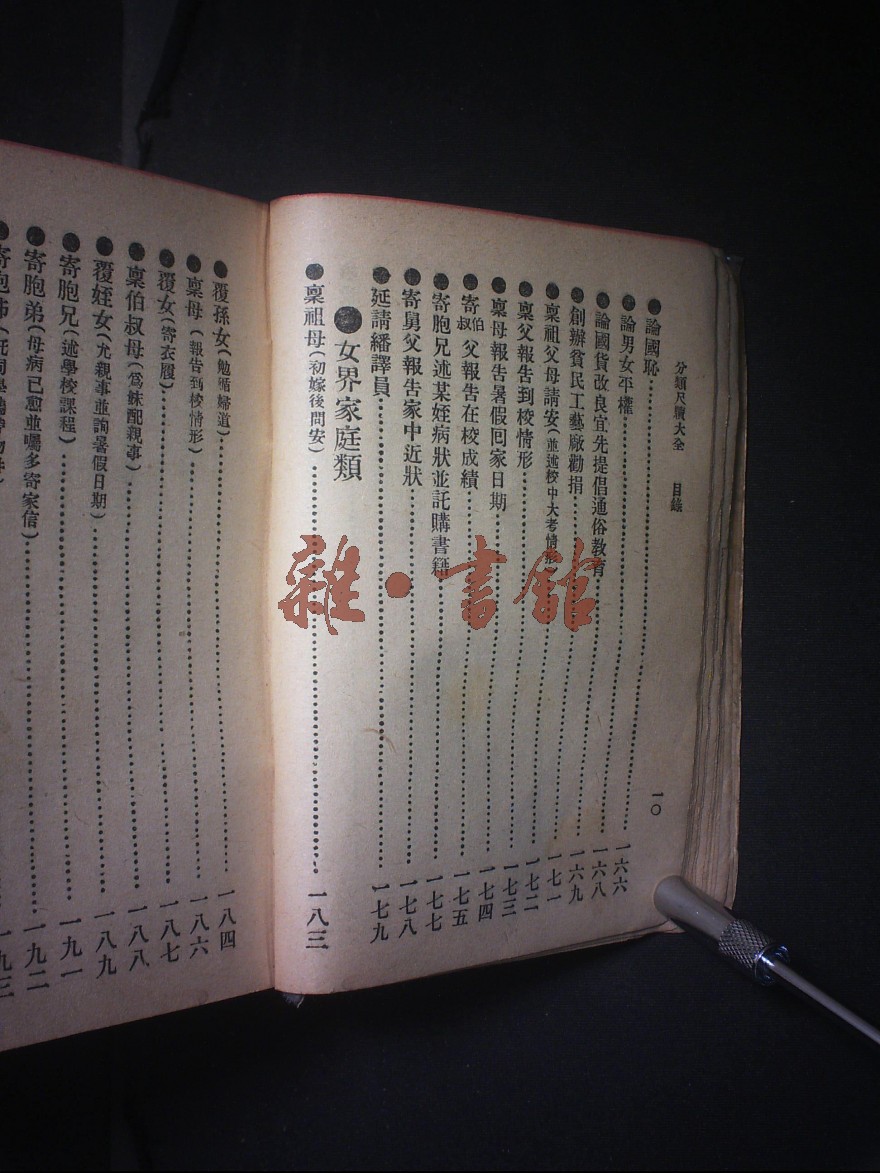 分類尺牘大全 目錄 一〇
論國恥 一六六
論男女平權 一六八
論國貨改良宜先提倡通俗教育 一六九
創辦貧民工藝廠勸捐 一七一
稟祖父母請安（並述校中大考情形） 一七二
稟父報告到校情形 一七三
稟母報告暑假回家日期 一七四
寄伯叔父報告在校成績 一七五
寄胞兄述某姪病狀並託購書籍 一七七
寄舅父報告家中近狀 一七八
延請繙譯員 一七九
女界家庭類
稟祖母（初嫁後問安） 一八三
覆孫女（勉循婦道） 一八四
稟母（報告到校情形） 一八六
覆女（寄衣履） 一八七
稟伯叔母（爲妹配親事） 一八八
覆姪女（允親事並詢暑假日期） 一八九
寄胞兄（述學校課程） 一九一
寄胞弟（母病已愈並囑多寄家信） 一九二
寄胞 一九三
雜·書館